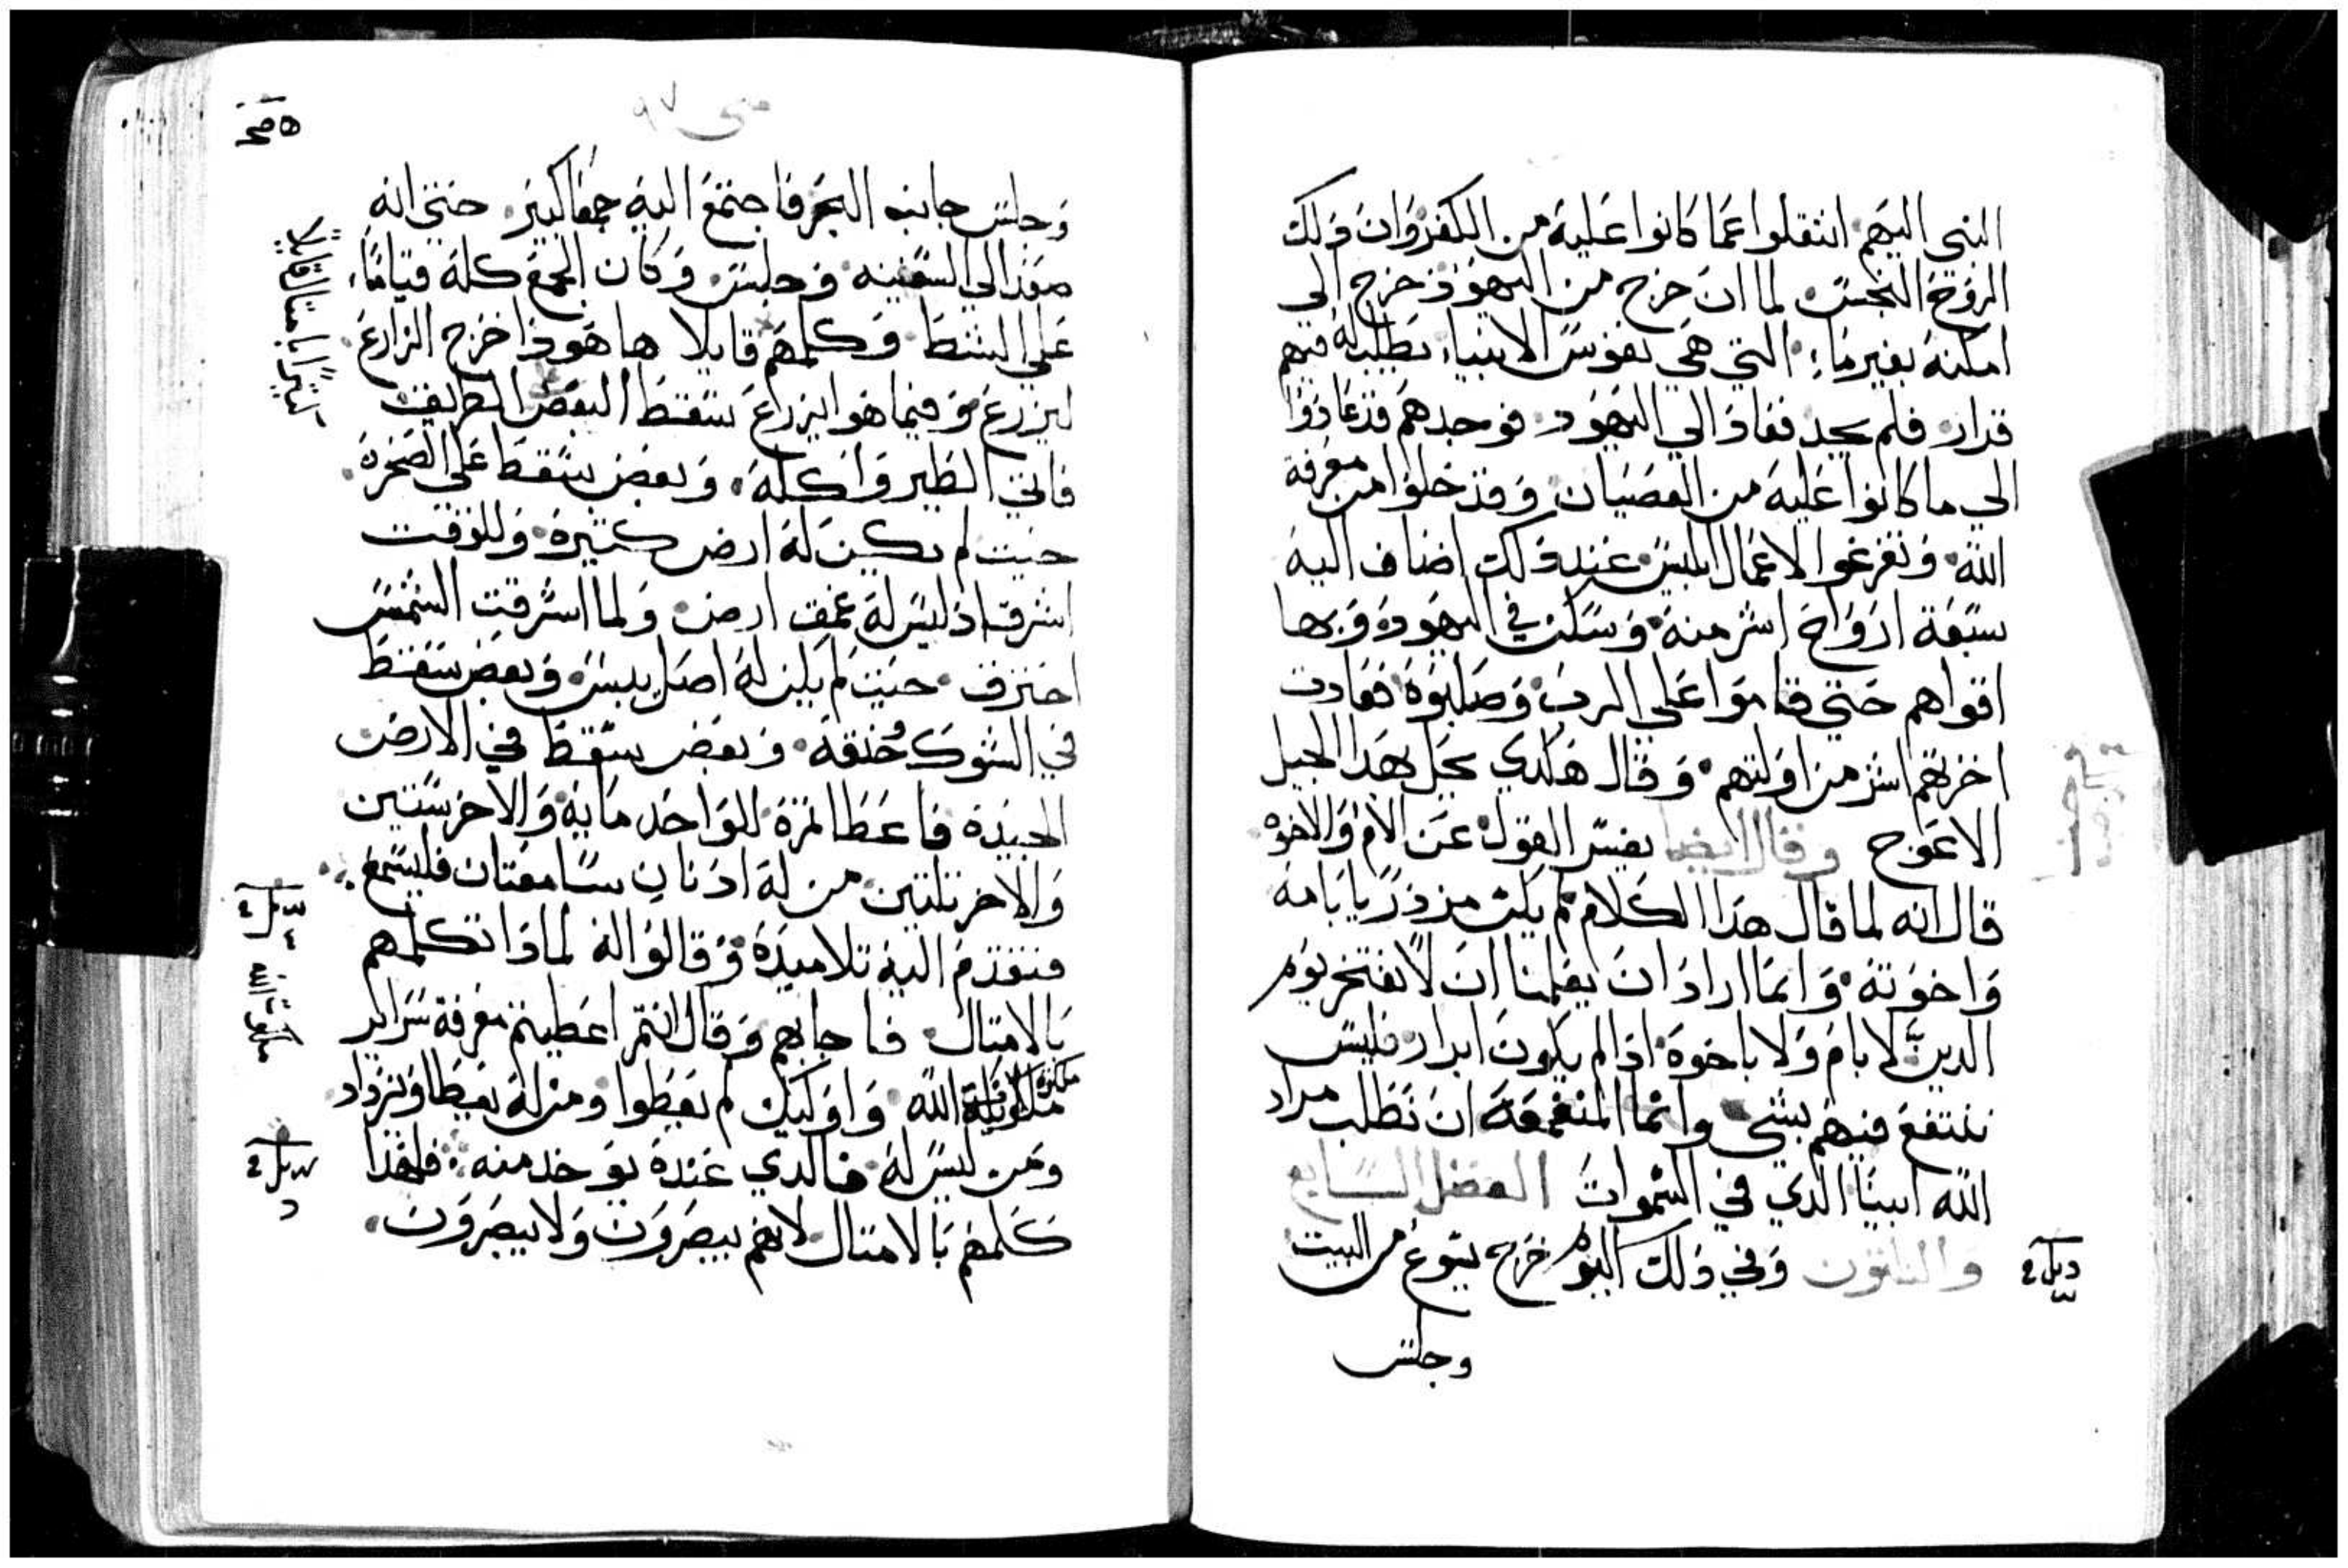 النبي اليهم انتقلوا عما كانوا عليه من الكفر وان ذلك
الروح النجس لما ان خرج من اليهود خرج الي
امكنة بغير ماء التي هي نفوس الانبياء يطلب له فيهم
قرار فلم يجد فعاد الي اليهود فوجدهم قد عادوا
الي ما كانوا عليه من العصيان وقد خلوا من معرفة
الله وتفرغوا لاعمال ابليس عند ذلك اضاف اليه
سبعة ارواح اشر منه وسكن في اليهود وبها
اقواهم حتي قاموا علي الرب وصلبوه فعادت
اخرتهم اشر من اولتهم وقال هكدي يحل بهدا الجيل
الاعوج وقال ايضا يفسر القول عن الام والاخوه
قال انه لما قال هدا الكلام لم يكن مزدريا بامه
واخوته وانما اراد ان يعلمنا ان لا نفتخر يوم
الدين لا بام ولا باخوة اذا لم يكون ابرار فليس
ننتفع فيهم بشي وانما المنفعة ان نطلب مراد
الله ابينا الدي في السموات الفصل السابع
والثلثون وفي ذلك اليوم خرج يسوع من البيت
وجلس
متي ٩٧
وجلس جانب البحر فاجتمع اليه جمعا كبير حتي انه
صعد الي السفينه وجلس وكان الجمع كله قياما
علي الشط وكلمهم قايلا ها هودا خرج الزارع
ليزرع وفيما هوا يزرع سقط البعض الطريق
فاتي الطير واكله وبعض سقط علي الصخرة
حيت لم تكن له ارض كتيرة وللوقت
اشرق اد ليس له عمق ارض ولما اشرقت الشمس
احترق حيت لم يكن له اصل يبس وبعض سقط
في الشوك خنقه وبعض سقط في الارض
الجيدة فاعطا تمرة للواحد مايه والاخر ستين
والاخر تلتين من له ادنان سامعتان فليسمع
فتقدم اليه تلاميده وقالوا له لمادا تكلمهم
بالامتال فاجابهم وقال انتم اعطيتم معرفة سراير
ملكوت الله واوليك لم يعطوا ومن له يعطا ويزداد
ومن ليس له فالدي عنده يوخد منه فلهدا
كلمهم بالامتال لانهم يبصرون ولا يبصرون
كتيرا بامتال قايلا
ملكوت الله